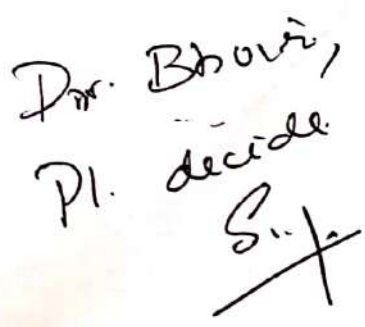 Dr. Bhovi,
Pl. decide.